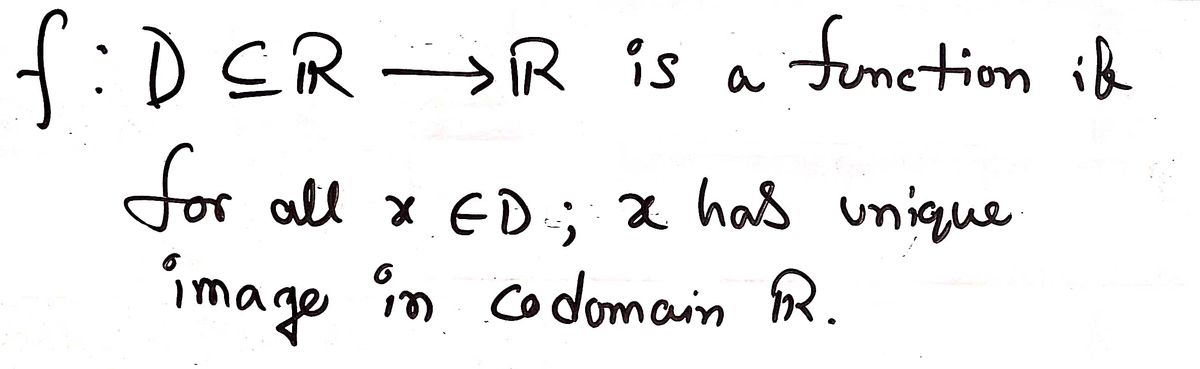 f : D ⊆ ℝ ⟶ ℝ is a function if
for all x ∈ D ; x has unique
image in codomain ℝ.